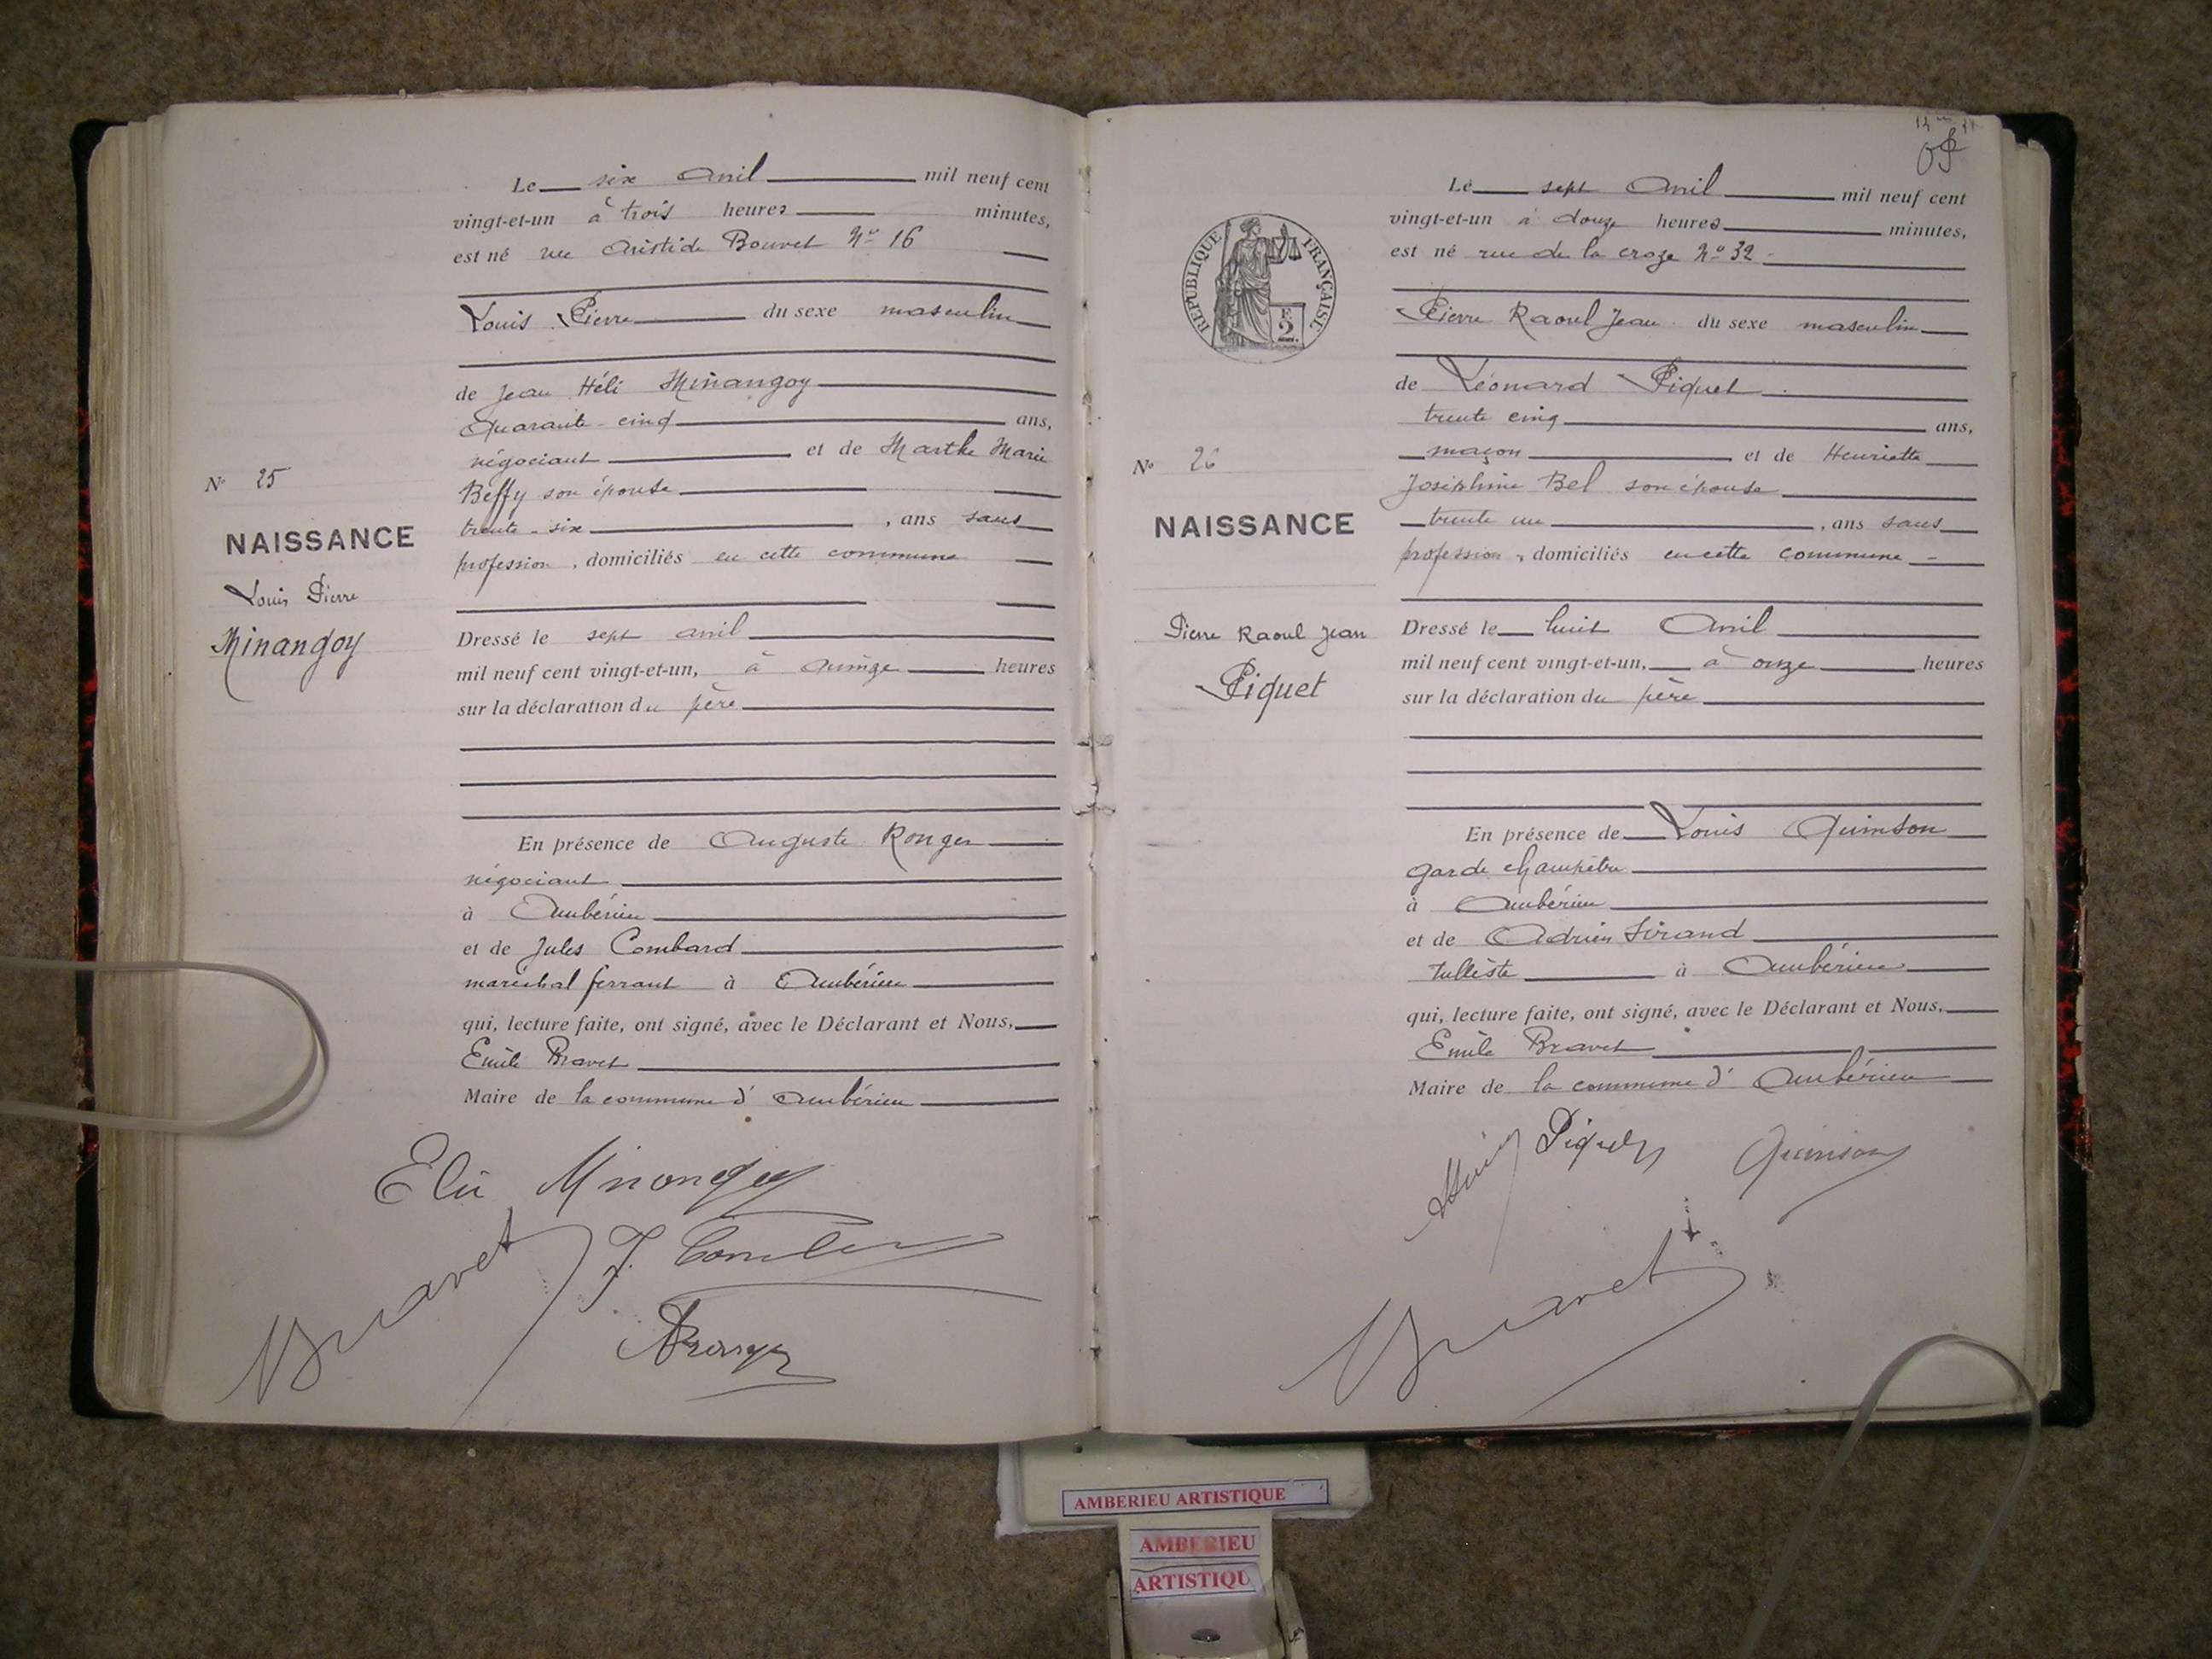 Le six avril mil neuf cent
vingt-et-un à trois heures minutes,
est né rue Aristide Bouvet N° 16
Louis Pierre du sexe masculin
de Jean Héli Minangoy
Quarante-cinq ans,
négociant et de Marthe Marie
Beffy son épouse
trente-six, ans sans
profession, domiciliés en cette commune
N° 25
NAISSANCE
Louis Pierre
Minangoy
Dressé le sept avril
mil neuf cent vingt-et-un, à quinze heures
sur la déclaration du père
En présence de Auguste Ronger
négociant
à Ambérieu
et de Jules Combard
maréchal ferrant à Ambérieu
qui, lecture faite, ont signé, avec le Déclarant et Nous,
Emile Bravet
Maire de la commune d'Ambérieu
Minangoy
Bravet
J.
Le sept Avril mil neuf cent
vingt-et-un à douze heures minutes,
est né rue de la croze N° 32
RÉPUBLIQUE FRANÇAISE
2
Pierre Raoul Jean du sexe masculin
de Léonard Piquet
trente cinq ans,
maçon et de Henriette
Joséphine Bel son épouse
trente un, ans sans
profession, domiciliés en cette commune
N° 26
NAISSANCE
Pierre Raoul Jean
Piquet
Dressé le huit Avril
mil neuf cent vingt-et-un, à onze heures
sur la déclaration du père
En présence de Louis Quinson
garde champêtre
à Ambérieu
et de Adrien Sirand
tulliste à Ambérieu
qui, lecture faite, ont signé, avec le Déclarant et Nous,
Emile Bravet
Maire de la commune d'Ambérieu
Piquet Quinson
Bravet
AMBERIEU ARTISTIQUE
AMBERIEU
ARTISTIQU